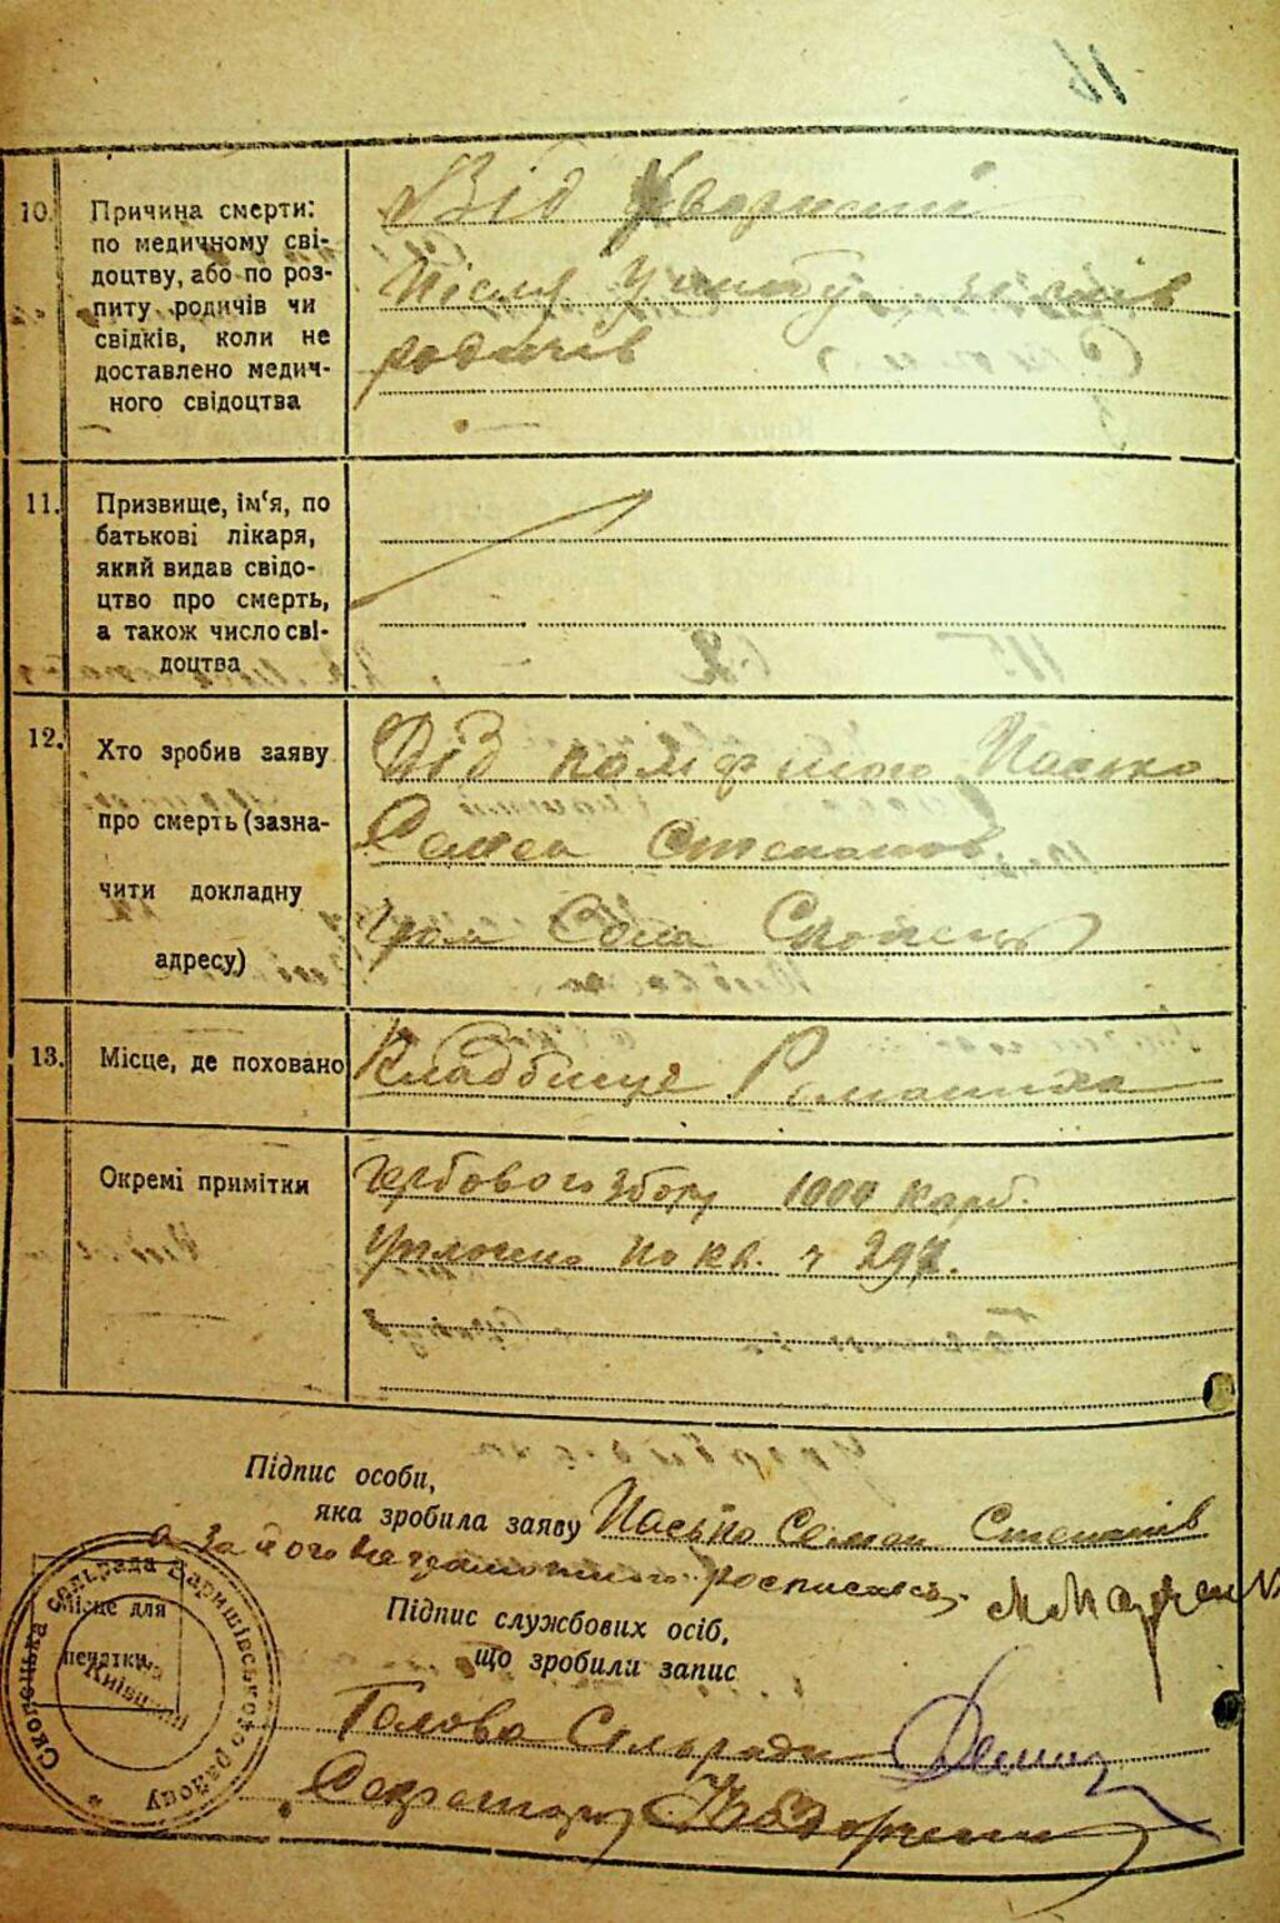 16
10. Причина смерти:
по медичному сві-
доцтву, або по роз-
питу родичів чи
свідків, коли не
доставлено медич-
ного свідоцтва
Від
Після зі слів
родичів
11. Призвище, ім‘я, по
батькові лікаря,
який видав свідо-
цтво про смерть,
а також число сві-
доцтва
12. Хто зробив заяву
про смерть (зазна-
чити докладну
адресу)
Дід Пасько
Семен Степанов
гром Села Скопець
13. Місце, де поховано
Кладбище
Окремі примітки
Гербового збору 1000 карб.
Уплочено по кв. 297.
Підпис особи,
яка зробила заяву Пасько Семен Степанів
а за його неграмотного росписався М Марченко
Підпис службових осіб,
що зробили запис
Місце для
печатки
Скопецька сельрада Баришівського району
Київщини
Голова Сільради
Секретарь